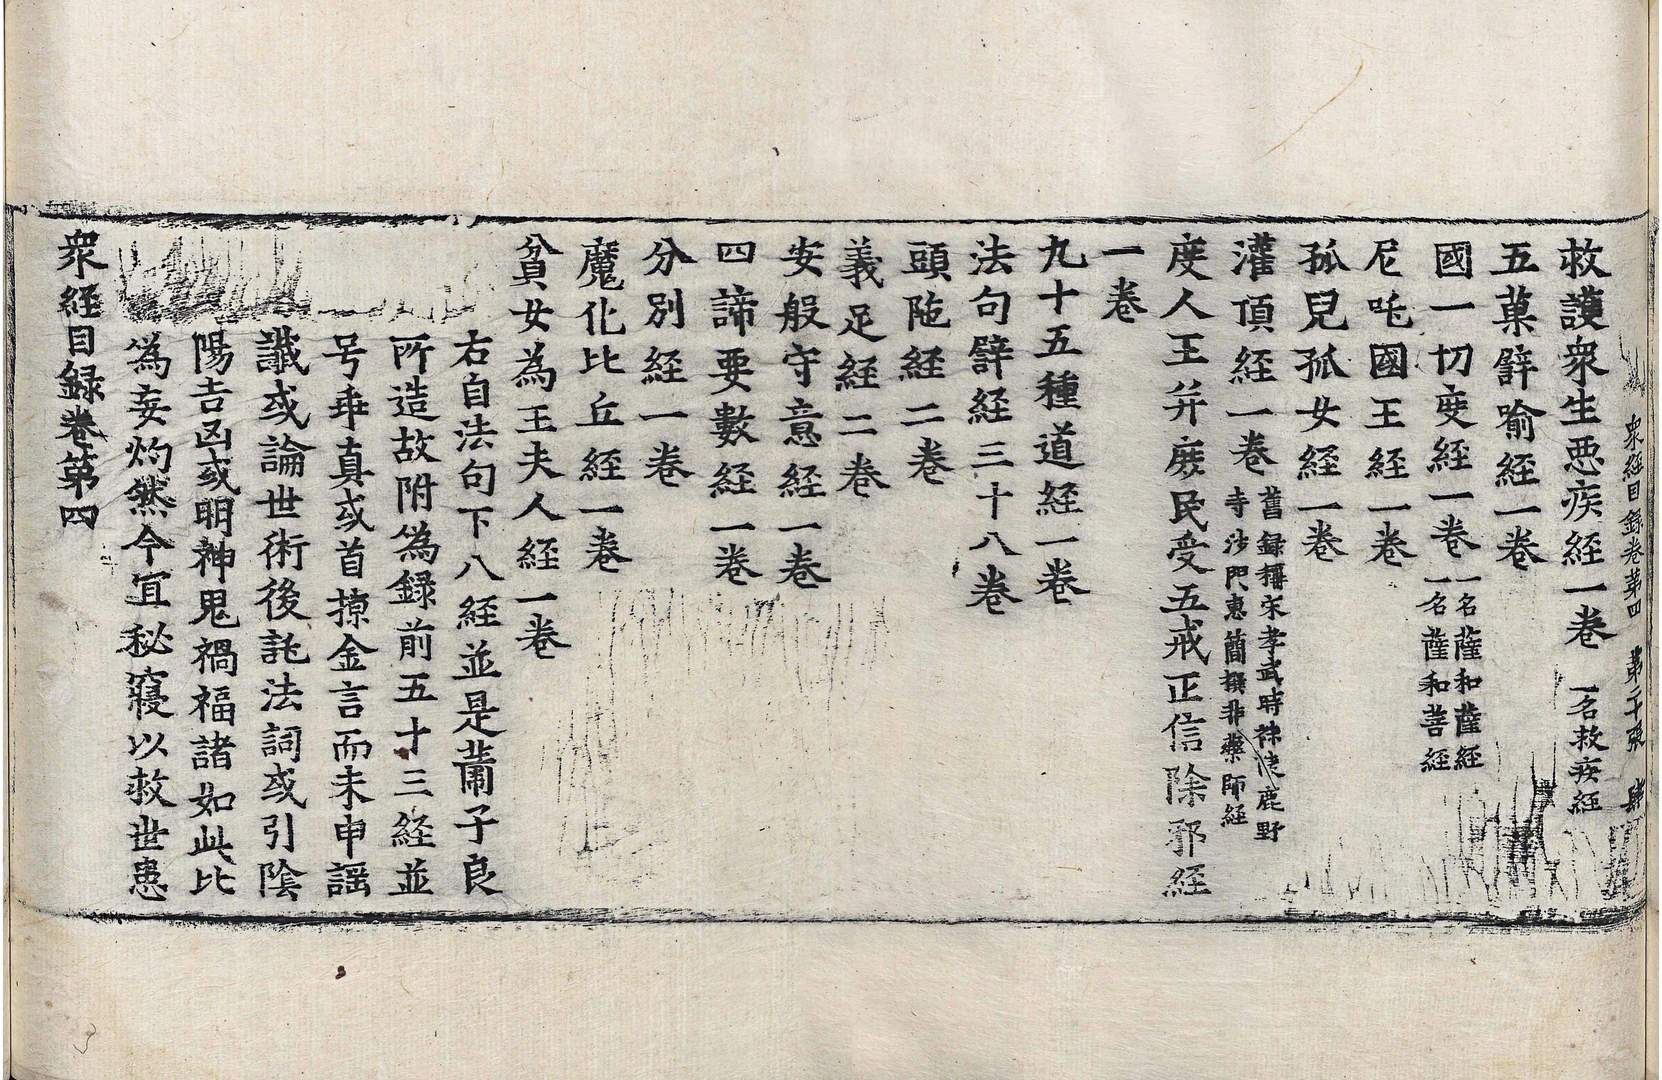 衆経目録卷第四　第二十張　肆
救護衆生悪疾経一卷　一名救疾経
五菓譬喻経一卷
國一切度経一卷　一名薩和薩経
一名薩和菩経
尼吒國王経一卷
孤兒孤女経一卷
灌頂経一卷　舊録稱宋孝武時秣陵鹿野
寺沙門惠簡撰非藥師経
度人王并庶民受五戒正信除邪経
一卷
九十五種道経一卷
法句譬経三十八卷
頭陁経二卷
義足経二卷
安般守意経一卷
四諦要數経一卷
分別経一卷
魔化比丘経一卷
貧女為王夫人経一卷
右自法句下八経並是蕭子良
所造故附為録前五十三経並
号乖真或首掠金言而末申謡
讖或論世術後託法詞或引陰
陽吉凶或明神鬼禍福諸如此比
為妄灼然今冝秘寢以救世患
衆経目録卷第四